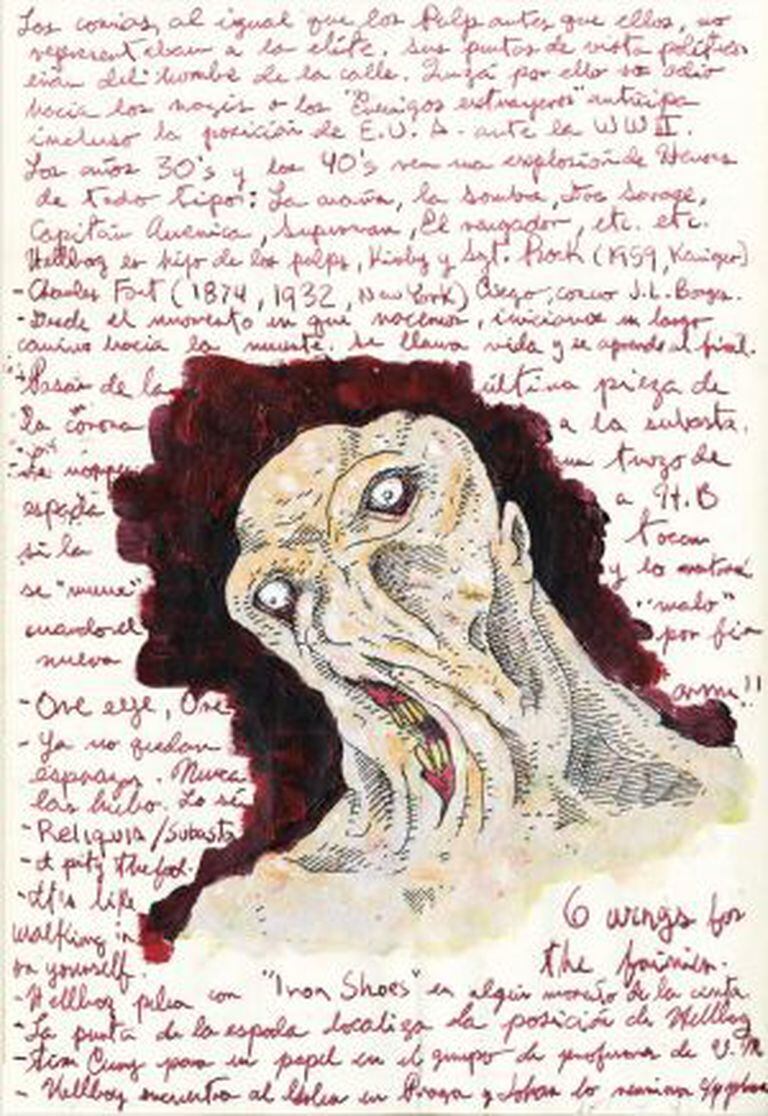 Los comics, al igual que los Pulps antes que ellos, no
representaban a la elite. Sus puntos de vista políticos
eran del hombre de la calle. Quizá por ello su odio
hacia los nazis o los "Enemigos extranjeros" anticipa
incluso la posición de E.U.A. ante la WWII.
Los años 30's y los 40's ven una explosión de Heroes
de todo tipo: La araña, la Sombra, Doc Savage,
Capitán America, Superman, El vengador, etc. etc.
Hellboy es hijo de los pulps, Kirby y Sgt. Rock (1959, Kanigher)
- Charles Fort (1874, 1932, New York) Ciego, como J.L. Borges.
- Desde el momento en que nacemos, iniciamos un largo
camino hacia la muerte. Se llama vida y se aprende al final.
Pasar de la última pieza de
la corona a la subasta.
se rompe un trozo de
espada a H.B
si la tocan
se "mueve" y lo
cuando el "malo"
nueva por fin
arma!!
- One eye, One
- Ya no quedan
esperanzas. Nunca
las hubo. Lo sé
- Reliquia/Subasta
- I pity the fool.
- It's like
walking in
on yourself.
6 wings for
the
- Hellboy pelea con "Iron Shoes" en algún momento de la cinta
- La punta de la espada localiza la posición de Hellboy
- Tim Curry para un papel en el grupo de profesores de
- Hellboy encuentra al Golem en Praga y Johan lo